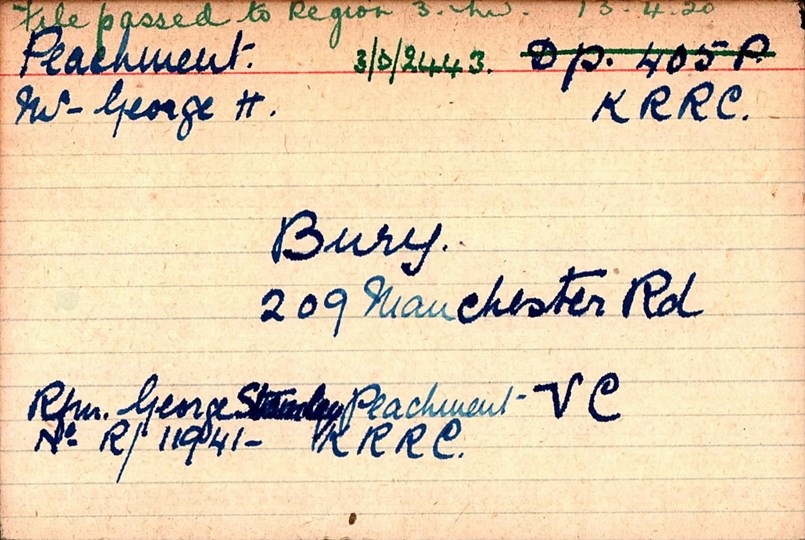 File passed to Region 3. 13.4.20
Peachment. 3/D/2443. Dp. 405 P.
Mr - George H. KRRC.
Bury.
209 Manchester Rd
Rfm. George Stanley Peachment - VC
No R/11941 - KRRC.